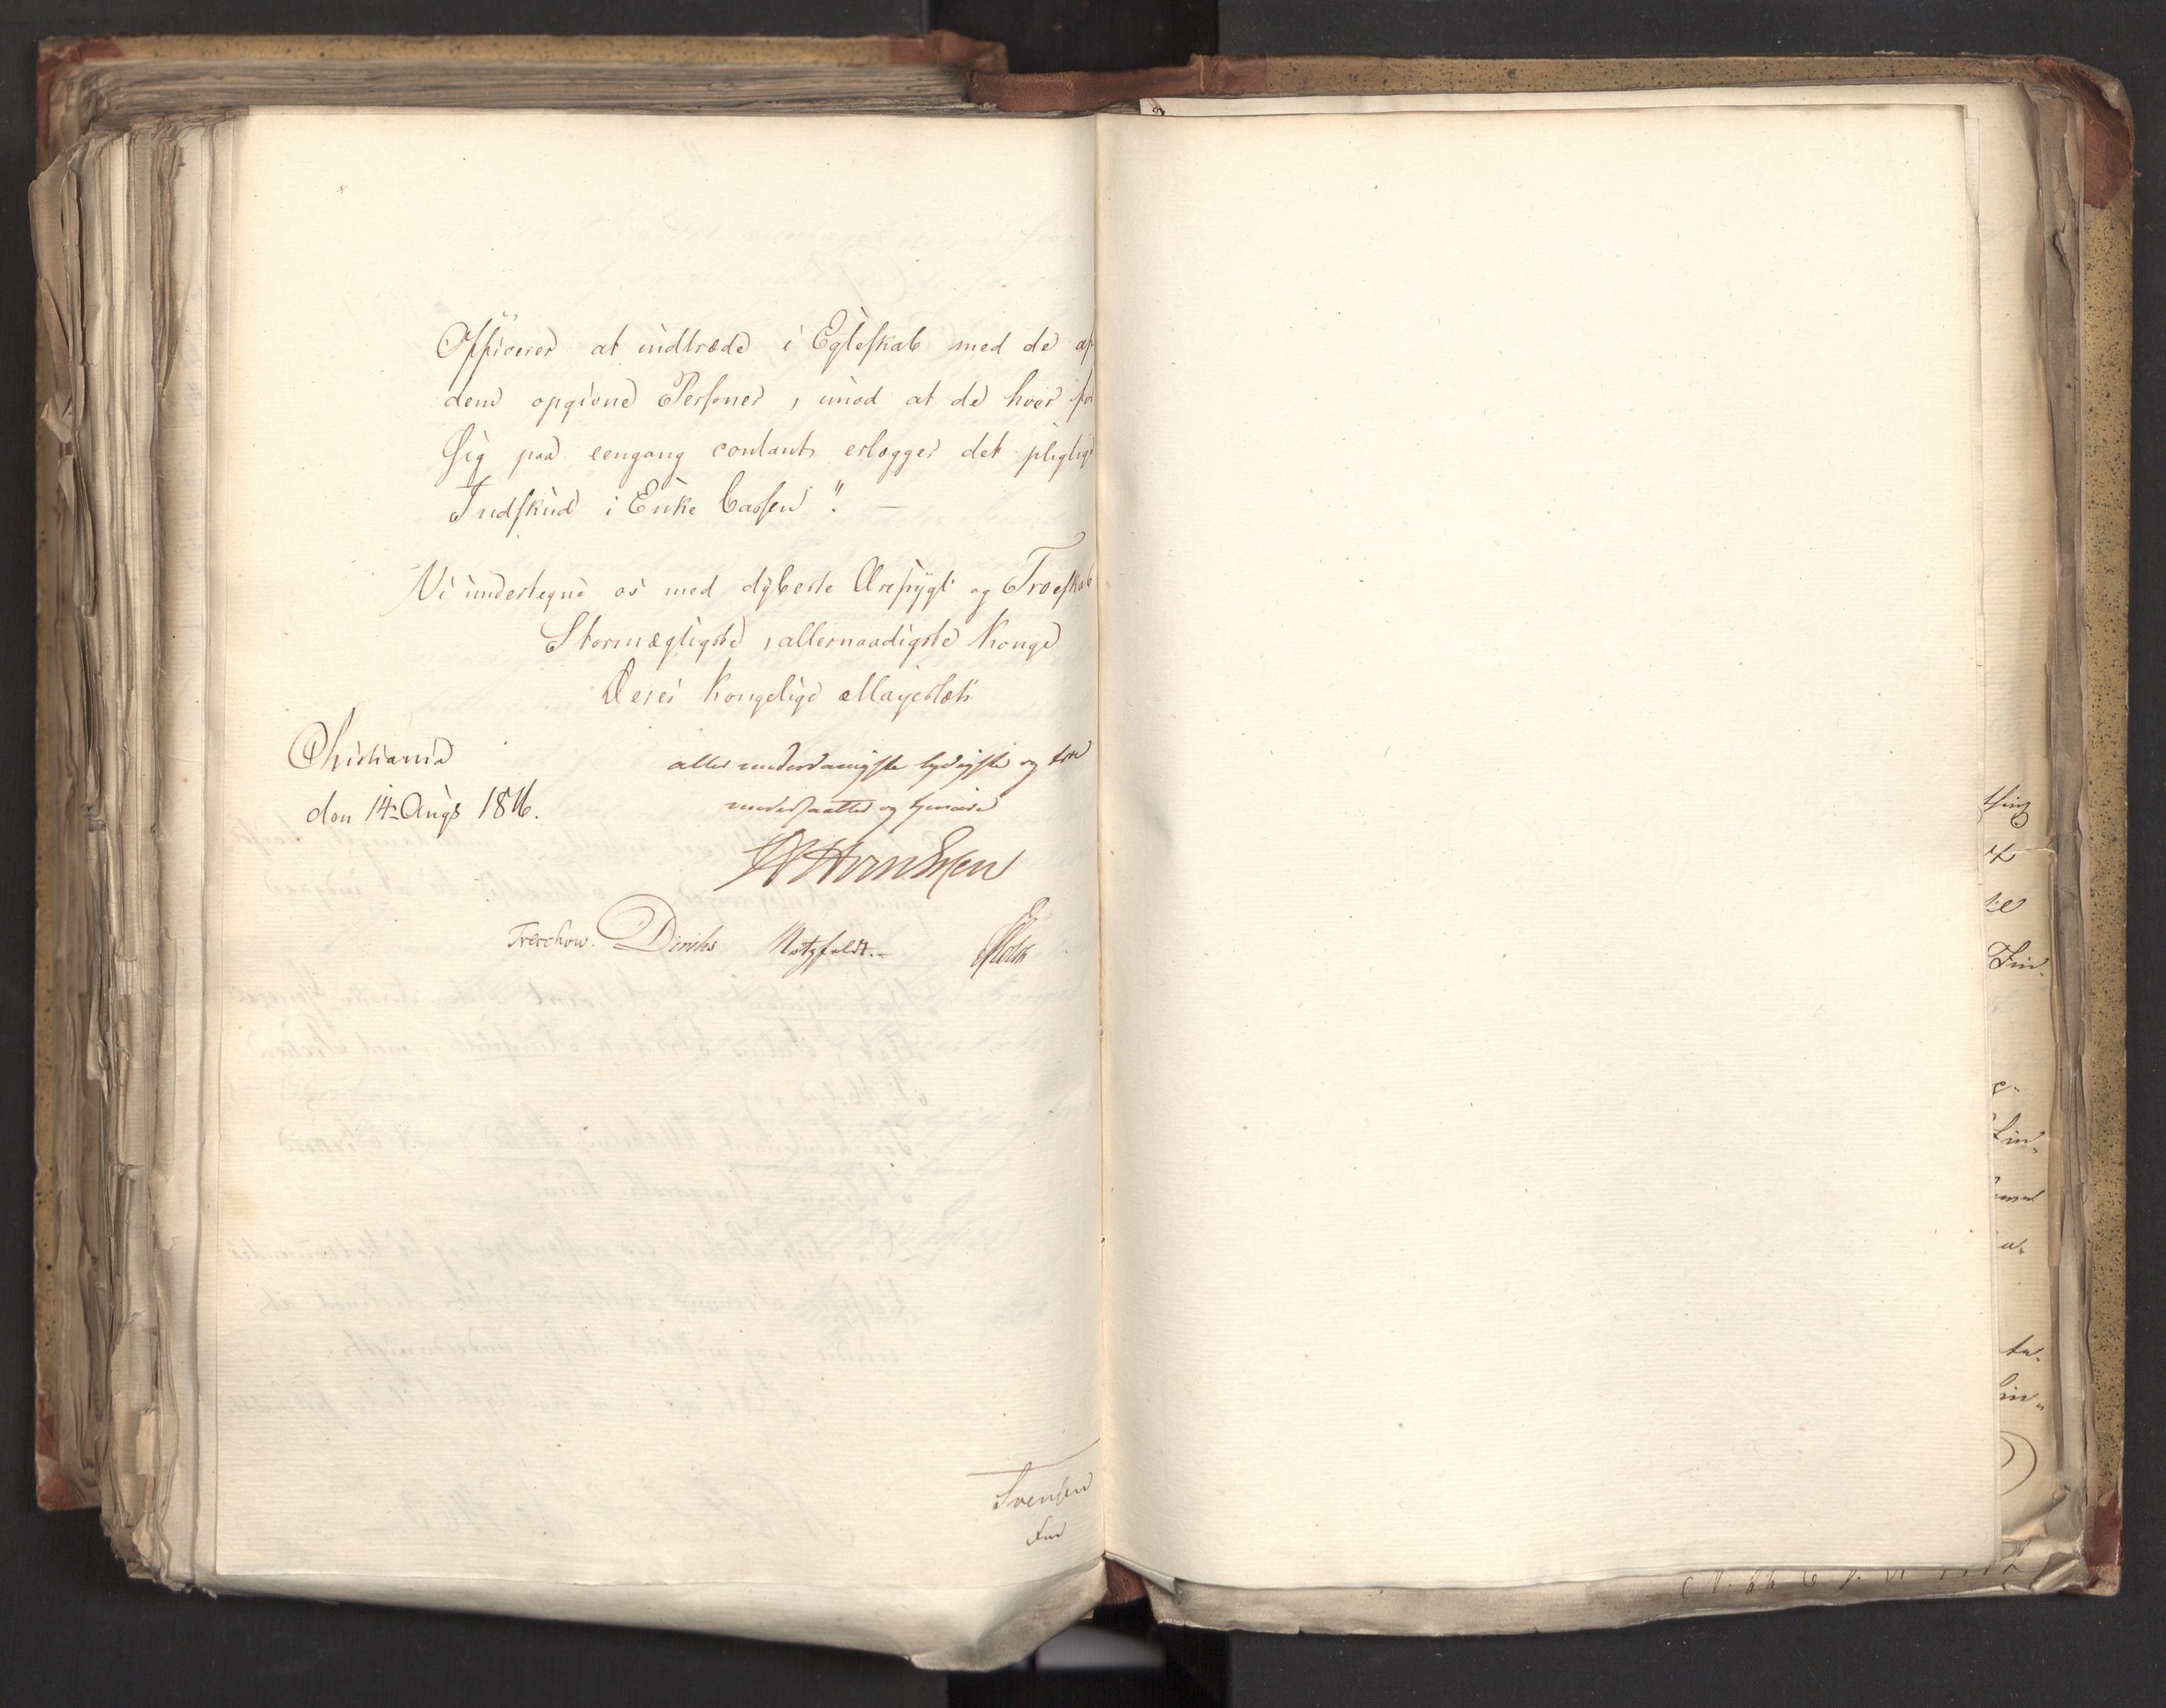 Officerer at indtræde i Egteskab med de af
dem opgivne Personer, imod at de hver for
Sig paa eengang contant erlægger det pligtige
Indskud i Enke Cassen". —
Vi undertegne os med dybeste Ærefrygt og Troeskab
Stormægtigste, allernaadigste Konge
Deres Kongelige Majestæts
Christiania
den 14de Augs 1816.
aller underdanigste lydigste og troe
undersaatter og tjenere
Treschow. Diriks Motzfeldt.-
Svensen